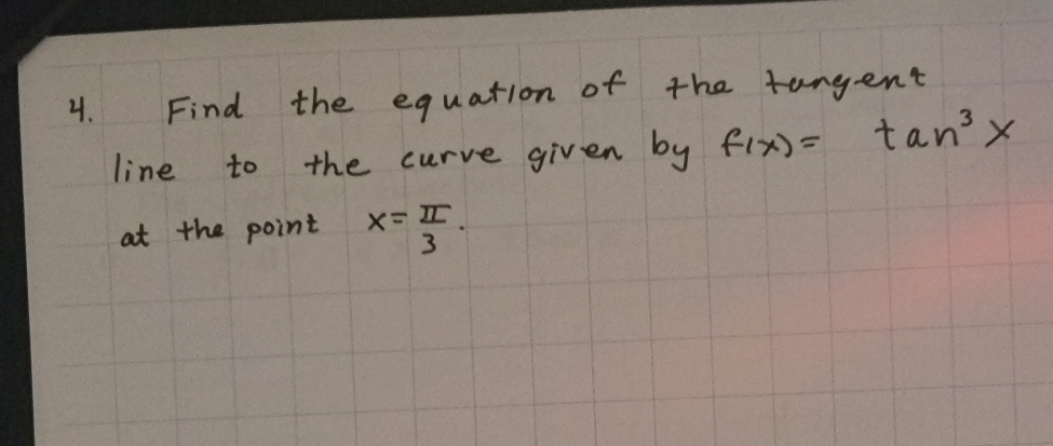 4. Find the equation of the tangent
line to the curve given by f(x) = tan³ x
at the point x = π/3.